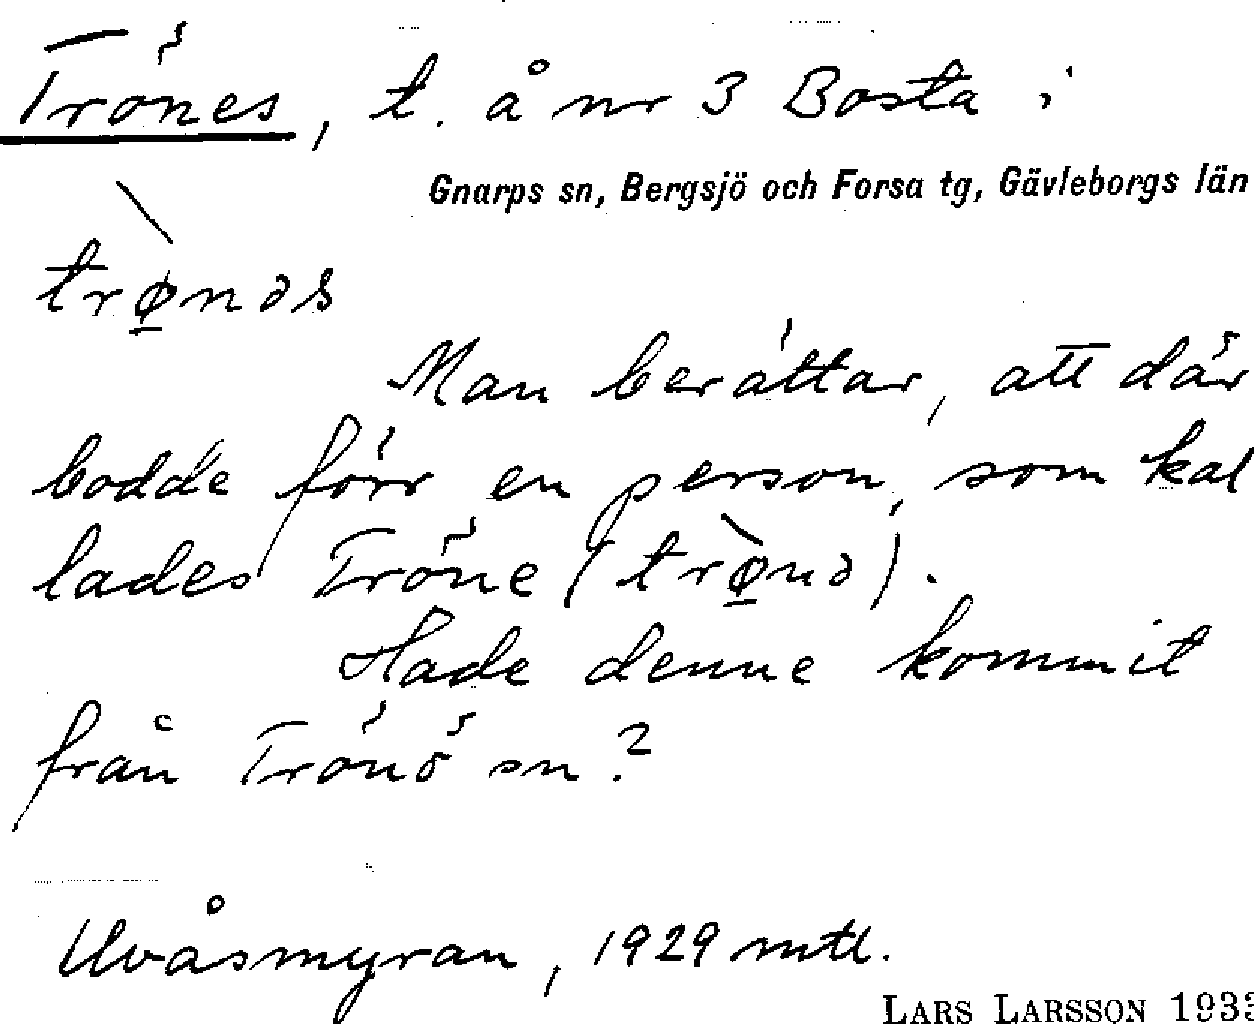 Trönes, t. å nr 3 Bosta i
Gnarps sn, Bergsjö och Forsa tg, Gävleborgs län
trø̲̀nəs
Man berättar, att där
bodde förr en person, som kal
lades Tröne (trø̲̀nə).
Hade denne kommit
från Trönö sn?
Ulvåsmyran, 1929 mtl.
LARS LARSSON 1933